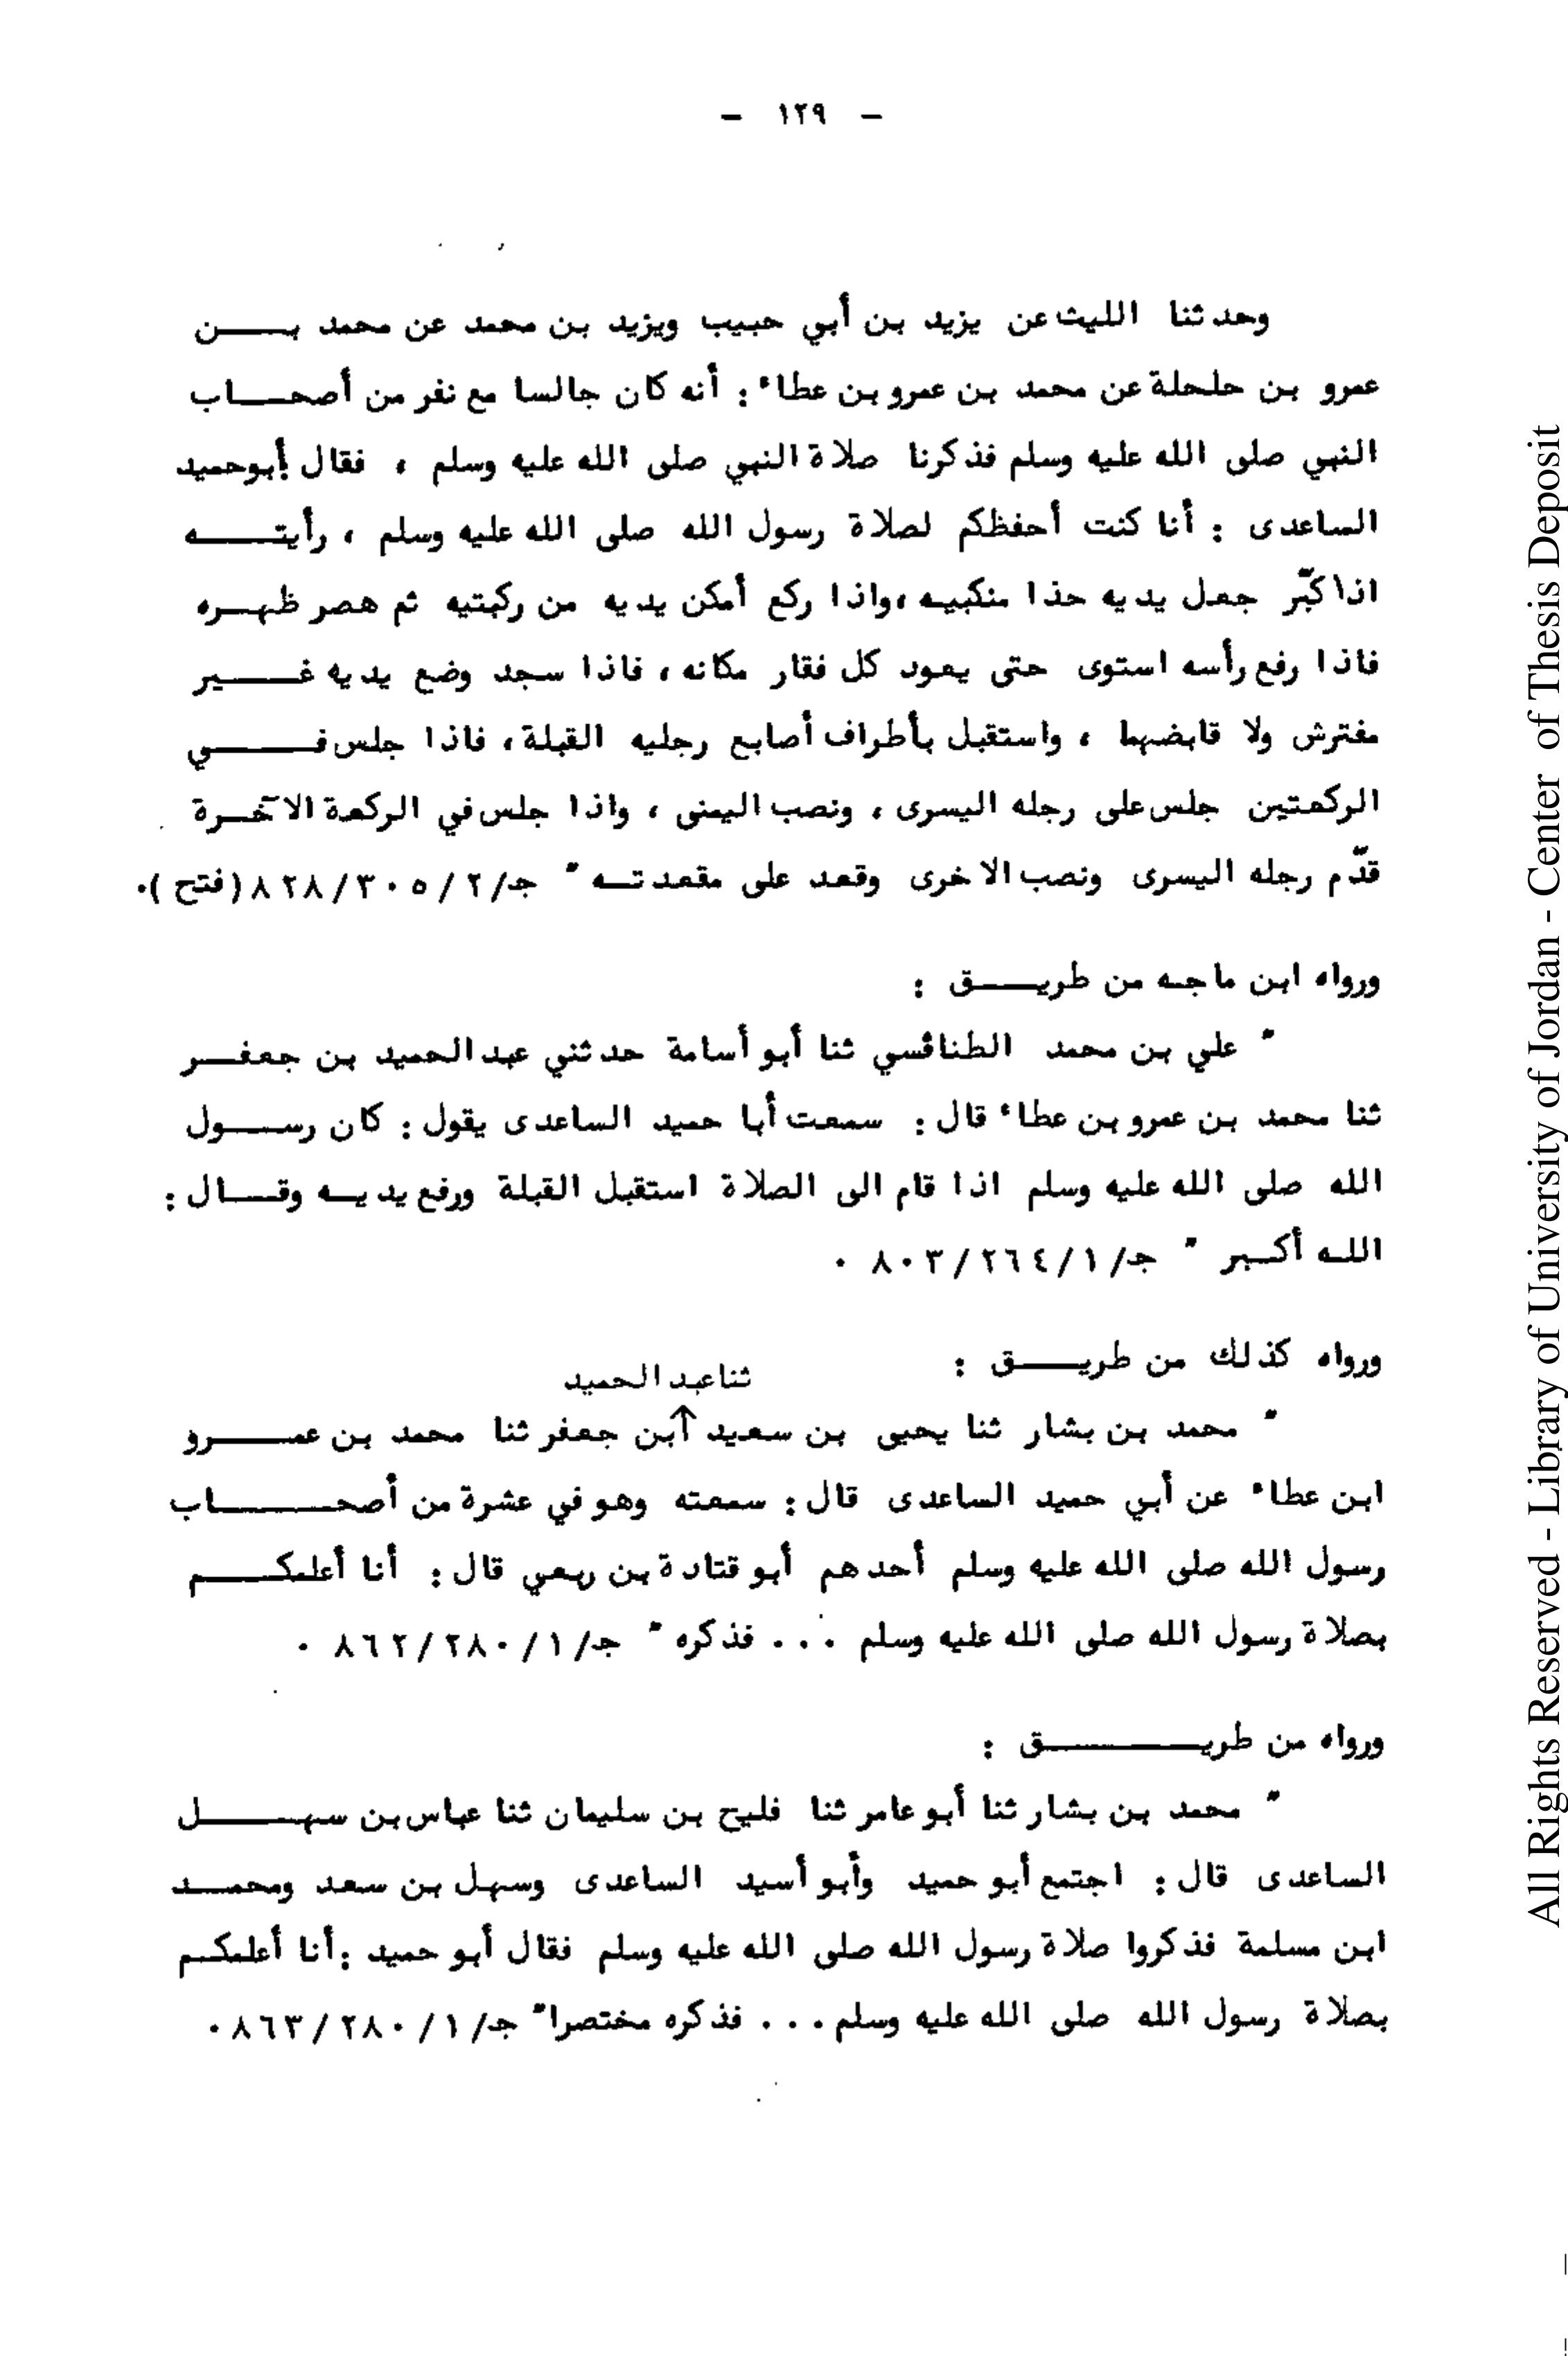 - ١٢٩ -
وحدثنا الليث عن يزيد بن أبي حبيب ويزيد بن محمد عن محمد بن
عمرو بن حلحلة عن محمد بن عمرو بن عطاء : أنه كان جالسا مع نفر من أصحاب
النبي صلى الله عليه وسلم فذكرنا صلاة النبي صلى الله عليه وسلم ، فقال أبوحميد
الساعدى : أنا كنت أحفظكم لصلاة رسول الله صلى الله عليه وسلم ، رأيته
اذا كبّر جعل يديه حذا منكبيه ،واذا ركع أمكن يديه من ركبتيه ثم هصر ظهره
فاذا رفع رأسه استوى حتى يعود كل فقار مكانه ، فاذا سجد وضع يديه غير
مفترش ولا قابضهما ، واستقبل بأطراف أصابع رجليه القبلة ، فاذا جلس في
الركعتين جلس على رجله اليسرى ، ونصب اليمنى ، واذا جلس في الركعة الآخرة
قدّم رجله اليسرى ونصب الاخرى وقعد على مقعدته " جـ/٢/٣٠٥/٨٢٨(فتح ).
ورواه ابن ماجه من طريق :
" علي بن محمد الطنافسي ثنا أبو أسامة حدثني عبد الحميد بن جعفر
ثنا محمد بن عمرو بن عطاء قال : سمعت أبا حميد الساعدى يقول : كان رسول
الله صلى الله عليه وسلم اذا قام الى الصلاة استقبل القبلة ورفع يديه وقال :
الله أكبر " جـ/١/٢٦٤/٨٠٣ .
ورواه كذلك من طريق :
ثنا عبد الحميد
" محمد بن بشار ثنا يحيى بن سعيد ↑ابن جعفر ثنا محمد بن عمرو
ابن عطاء عن أبي حميد الساعدى قال : سمعته وهو في عشرة من أصحاب
رسول الله صلى الله عليه وسلم أحدهم أبو قتادة بن ربعي قال : أنا أعلمكم
بصلاة رسول الله صلى الله عليه وسلم ... فذكره " جـ/١/٢٨٠/٨٦٢ .
ورواه من طريق :
" محمد بن بشار ثنا أبو عامر ثنا فليح بن سليمان ثنا عباس بن سهل
الساعدى قال : اجتمع أبو حميد وأبو أسيد الساعدى وسهل بن سعد ومحمد
ابن مسلمة فذكروا صلاة رسول الله صلى الله عليه وسلم فقال أبو حميد :أنا أعلمكم
بصلاة رسول الله صلى الله عليه وسلم ... فذكره مختصرا" جـ/١/٢٨٠/٨٦٣ .
All Rights Reserved - Library of University of Jordan - Center of Thesis Deposit